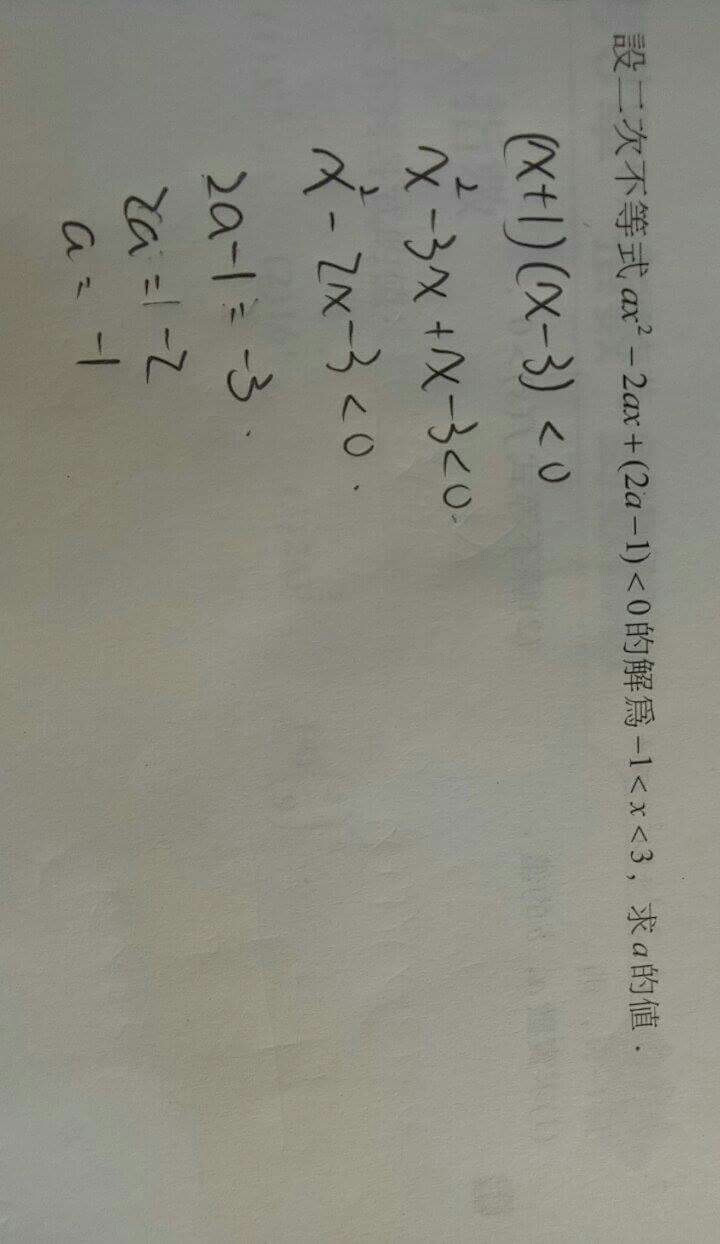 設二次不等式 ax² − 2ax + (2a − 1) < 0 的解爲 −1 < x < 3，求 a 的值．
(x+1)(x−3) < 0
x² − 3x + x − 3 < 0.
x² − 2x − 3 < 0.
2a − 1 = −3.
2a = −2
a = −1